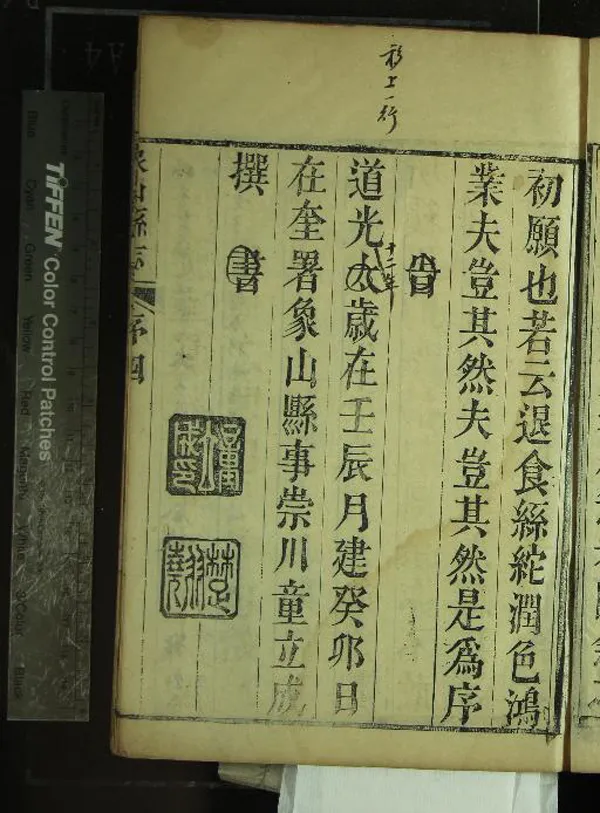 移上一行
初願也若云退食絲綻潤色鴻
業夫豈其然夫豈其然是為序
旹
道光十二年太歲在壬辰月建癸卯日
在奎署象山縣事崇川童立成
撰書
象山縣志
序四
TIFFEN Color Control Patches
Blue Cyan Green Yellow Red Magenta White 3/Color Black